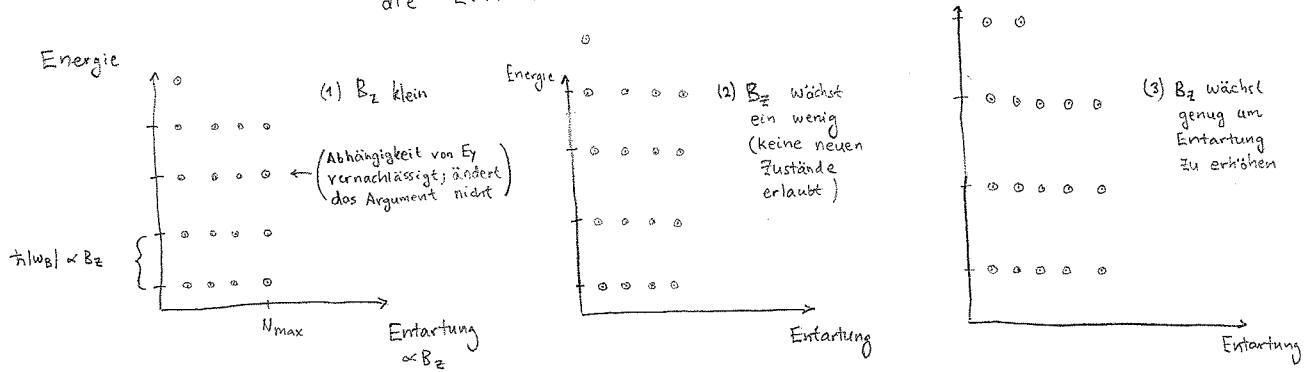 die
Energie
(1) B_z klein
(Abhängigkeit von Ey
vernachlässigt; ändert
das Argument nicht)
ħ|ω_B| ∝ B_z
N_max
Entartung
∝ B_z
Energie
(2) B_z wächst
ein wenig
(keine neuen
Zustände
erlaubt)
Entartung
(3) B_z wächst
genug um
Entartung
zu erhöhen
Entartung